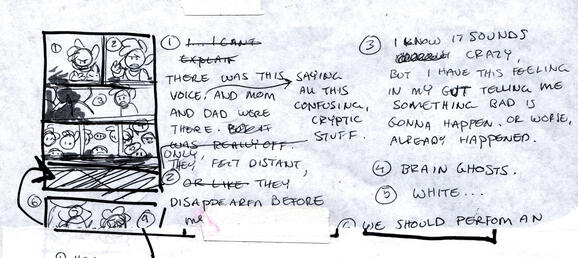 ① I... I CAN'T
EXPLAIN
THERE WAS THIS SAYING
VOICE, AND MOM ALL THIS
AND DAD WERE CONFUSING,
THERE. CRYPTIC
WAS REALLY OFF STUFF.
ONLY,
THEY FELT DISTANT,
② OR LIKE THEY
DISAPPEARED BEFORE
ME
③ I KNOW IT SOUNDS
CRAZY,
BUT I HAVE THIS FEELING
IN MY GUT TELLING ME
SOMETHING BAD IS
GONNA HAPPEN. OR WORSE,
ALREADY HAPPENED.
④ BRAIN GHOSTS.
⑤ WHITE...
WE SHOULD PERFOM AN
①
②
③
⑥